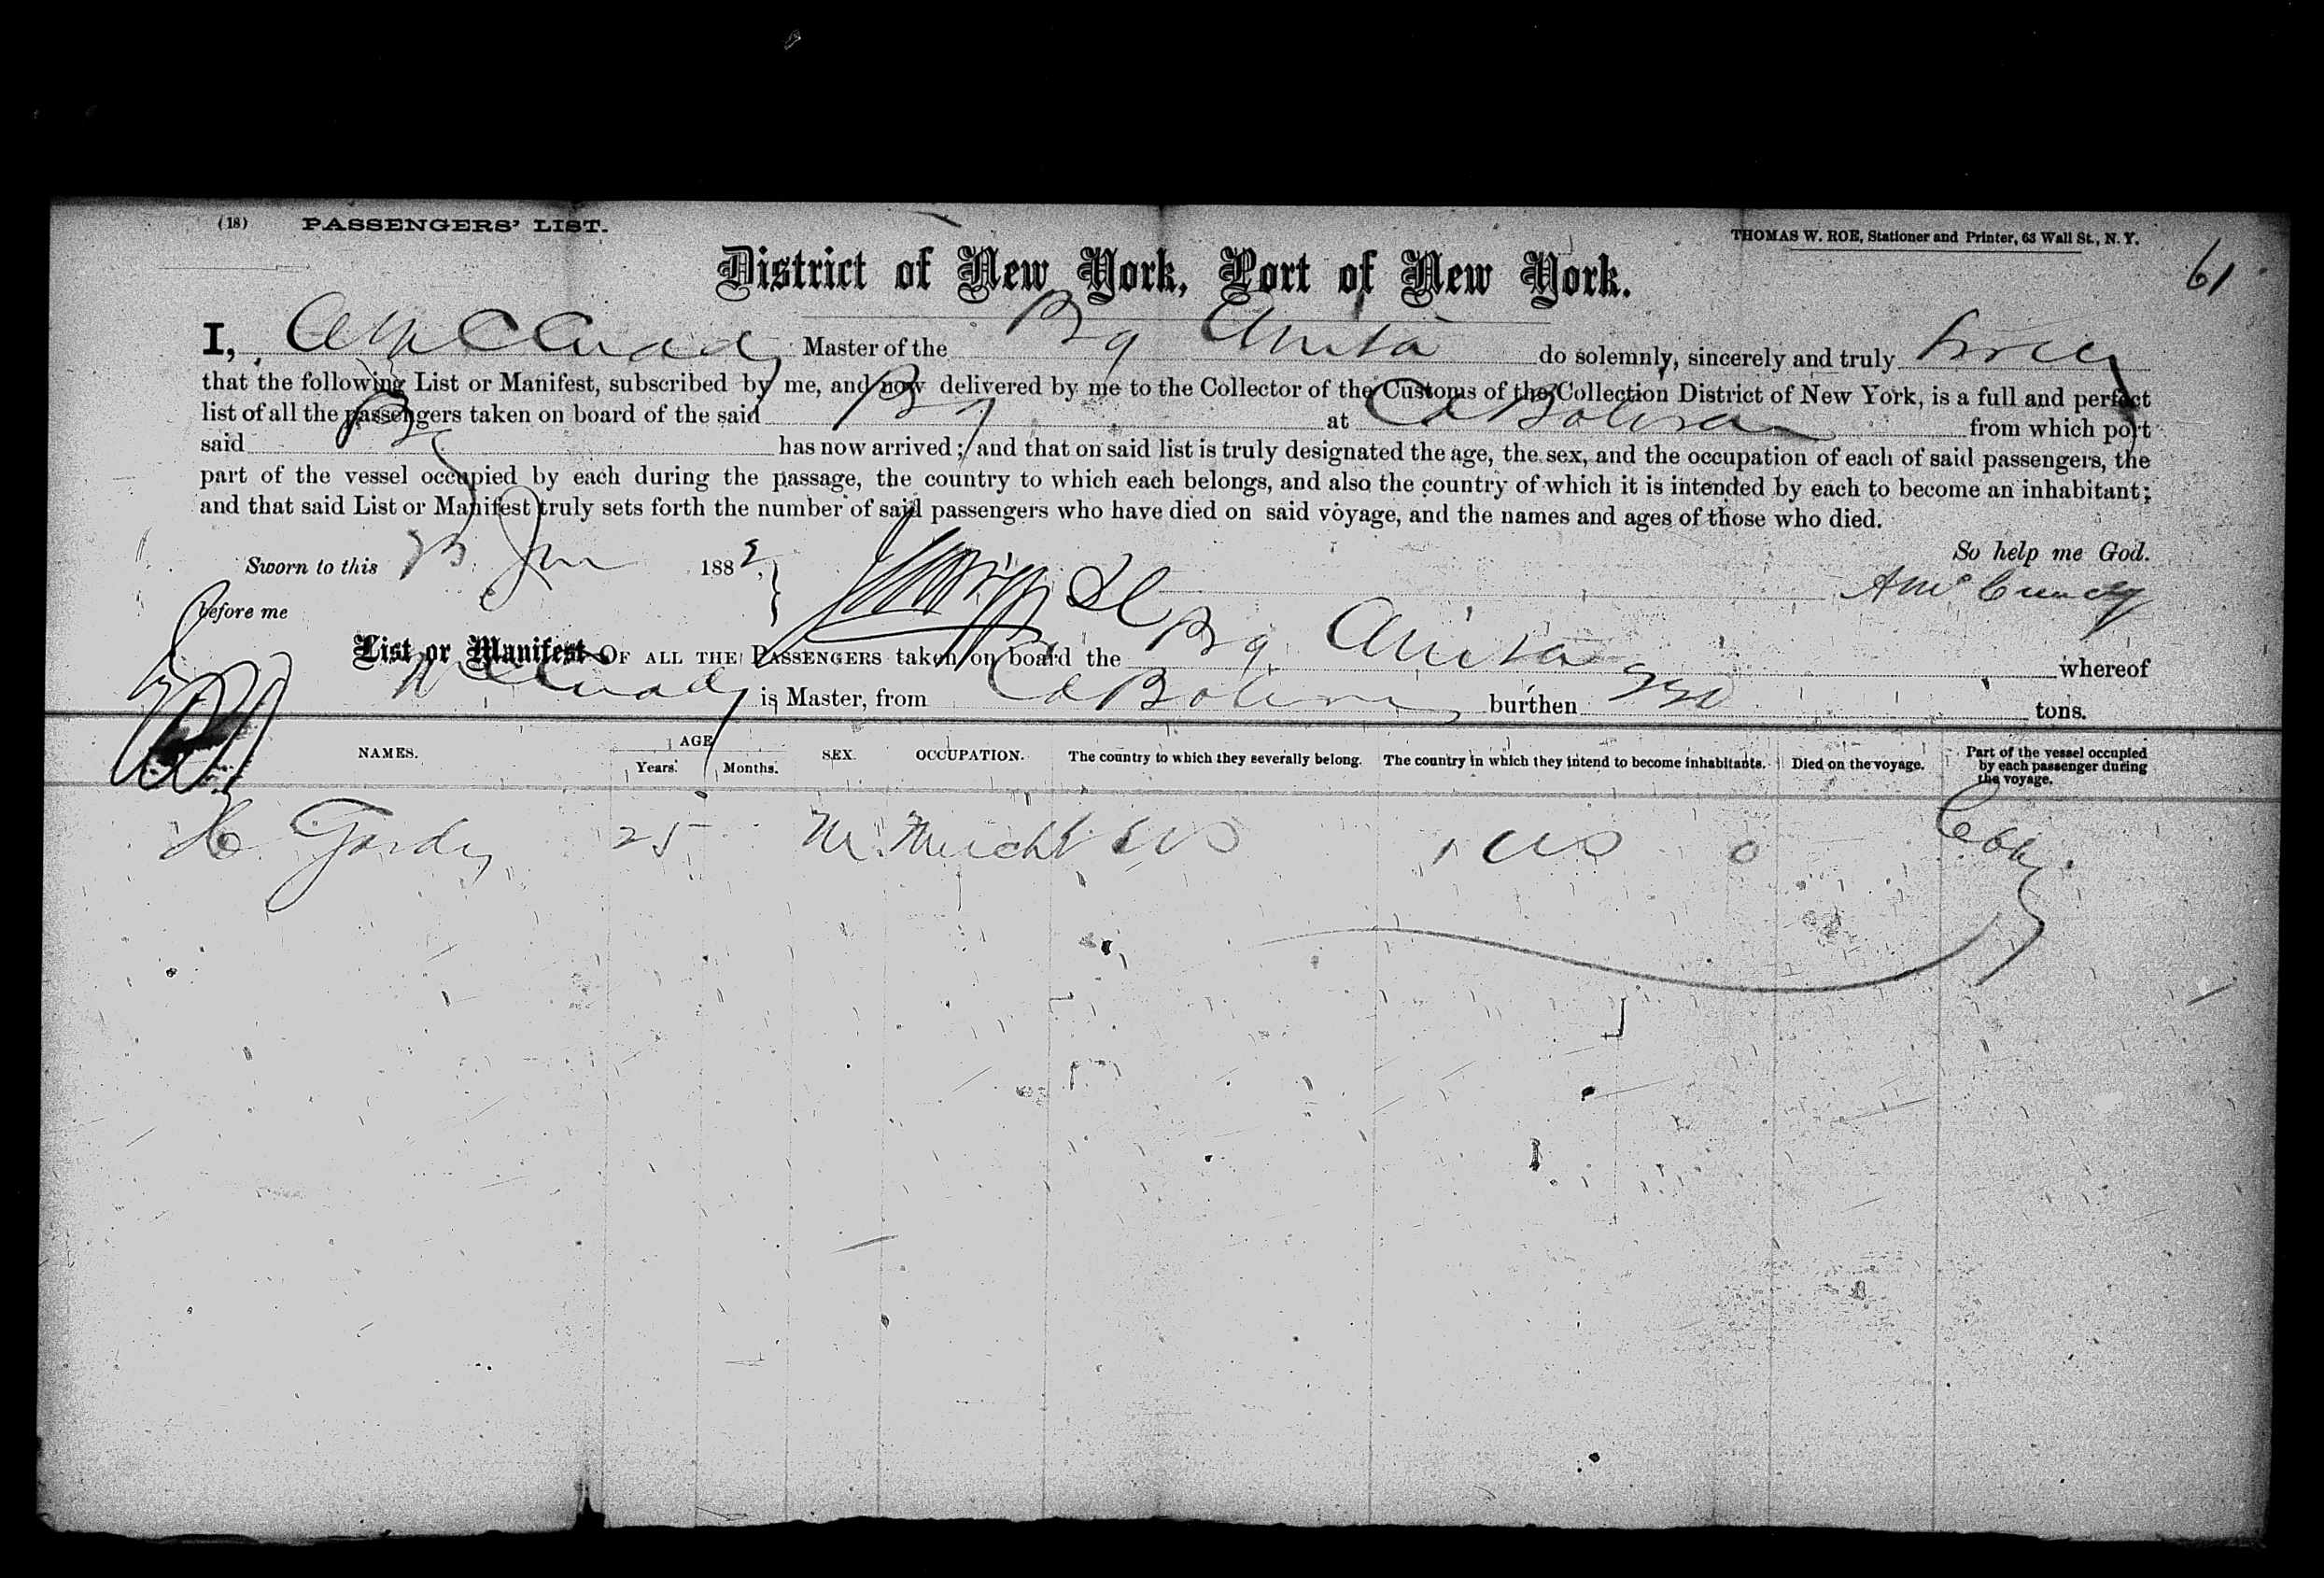 (18) PASSENGERS' LIST.
THOMAS W. ROE, Stationer and Printer, 63 Wall St., N. Y.
61
District of New York, Port of New York.
I, A McCurdy Master of the Bg Anita do solemnly, sincerely and truly swear
that the following List or Manifest, subscribed by me, and now delivered by me to the Collector of the Customs of the Collection District of New York, is a full and perfect
list of all the passengers taken on board of the said Bg at Cd Bolivar from which port
said Bg has now arrived; and that on said list is truly designated the age, the sex, and the occupation of each of said passengers, the
part of the vessel occupied by each during the passage, the country to which each belongs, and also the country of which it is intended by each to become an inhabitant;
and that said List or Manifest truly sets forth the number of said passengers who have died on said voyage, and the names and ages of those who died.
So help me God.
Sworn to this 23 Jan 1882
A McCurdy
before me
List or Manifest OF ALL THE PASSENGERS taken on board the Bg Anita whereof
McCurdy is Master, from Cd Bolivar burthen tons.
NAMES. AGE Years. Months. SEX. OCCUPATION. The country to which they severally belong. The country in which they intend to become inhabitants. Died on the voyage. Part of the vessel occupied by each passenger during the voyage.
25 M. Mercht US US 0 Cabin